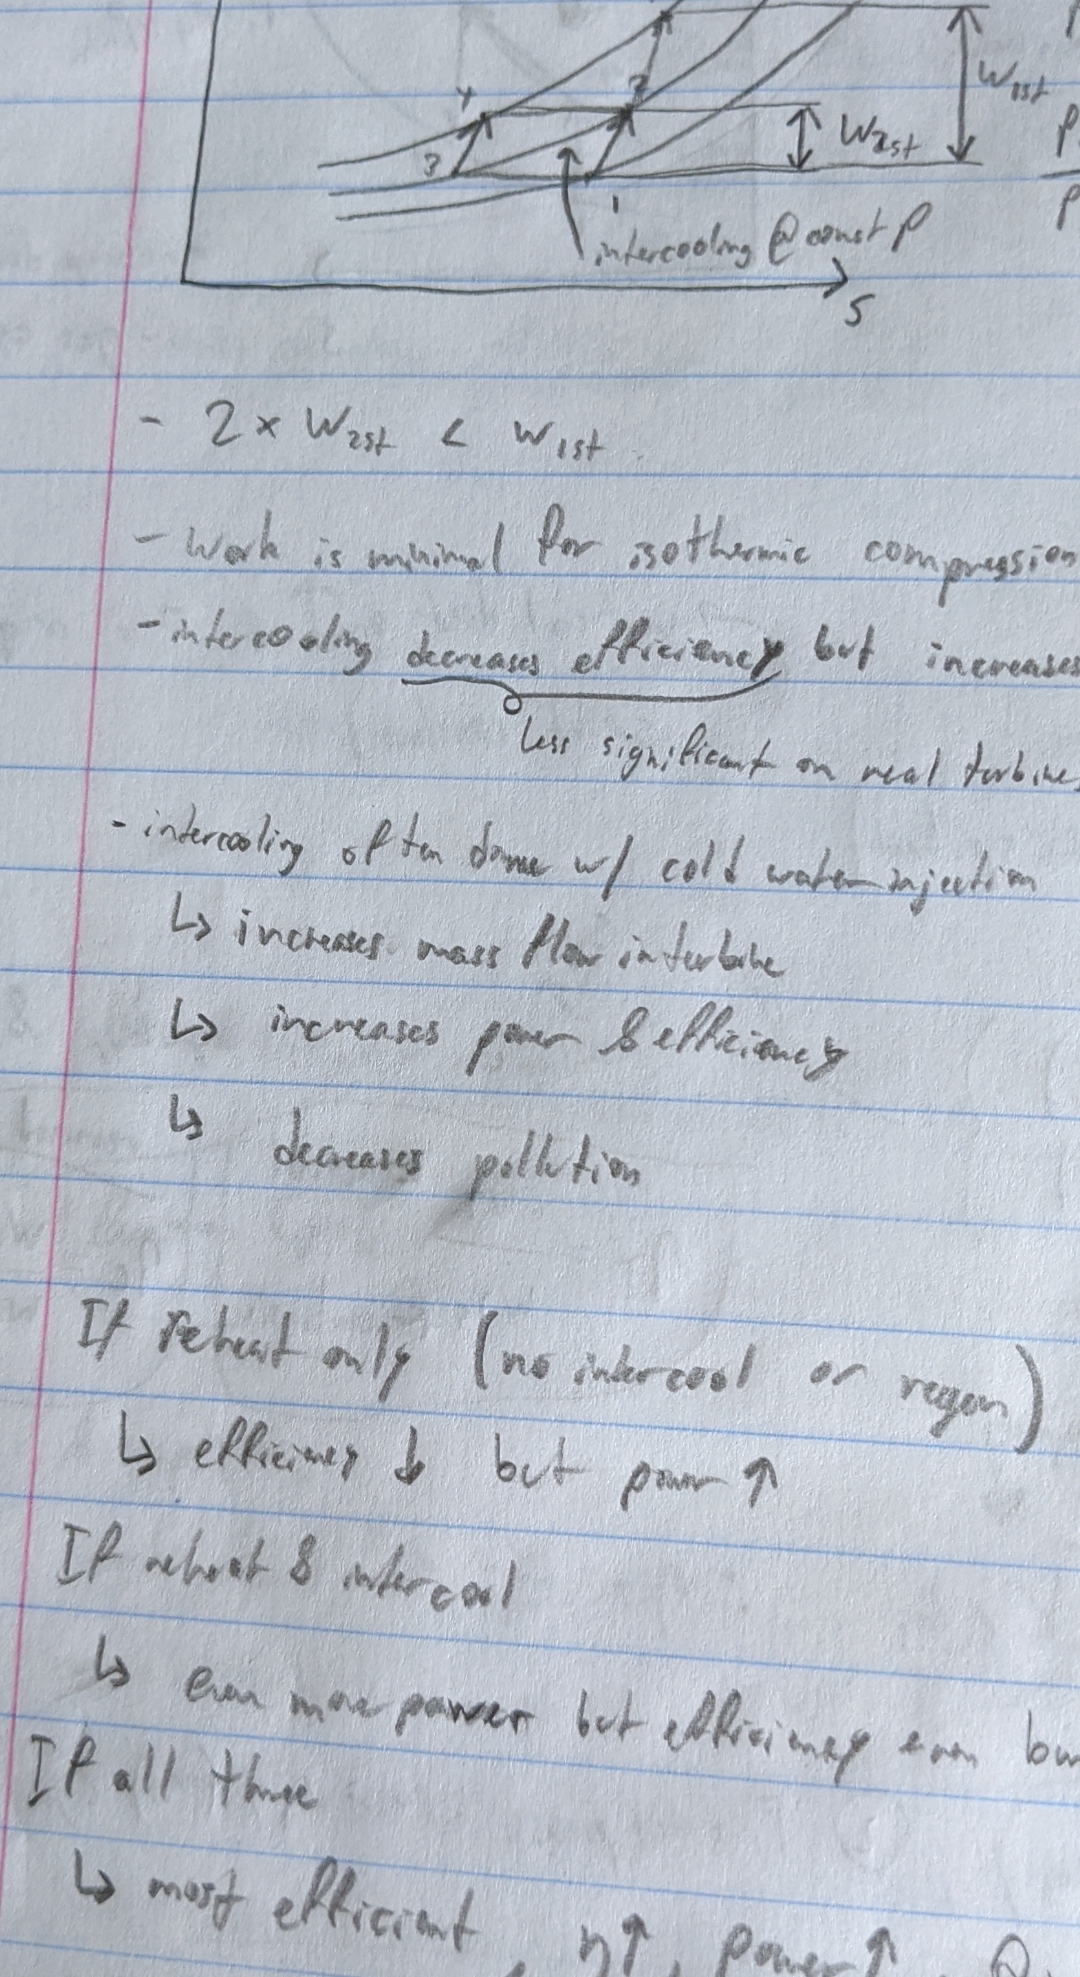 2
W1st
4
W2st
3
1
intercooling @ const p
S
- 2 x W2st < W1st
- Work is minimal for isothermic compression
- intercooling decreases efficiency but increases
less significant on real turbines
- intercooling often done w/ cold water injection
↳ increases mass flow in turbine
↳ increases power & efficiency
↳ decreases pollution
If reheat only (no intercool or regen)
↳ efficiency ↓ but power ↑
If reheat & intercool
↳ even more power but efficiency even
If all three
↳ most efficient, η↑, power↑